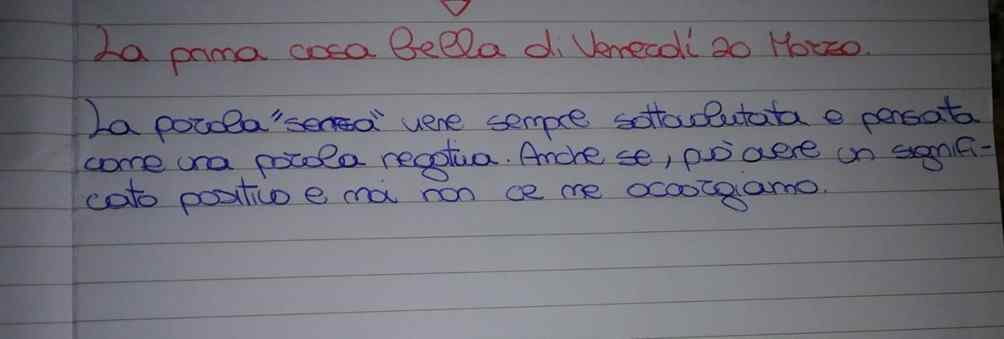 La prima cosa Bella di Venerdì 20 Marzo.
La parola "senza" viene sempre sottovalutata e pensata
come una parola negativa. Anche se, può avere un signifi-
cato positivo e noi non ce ne accorgiamo.